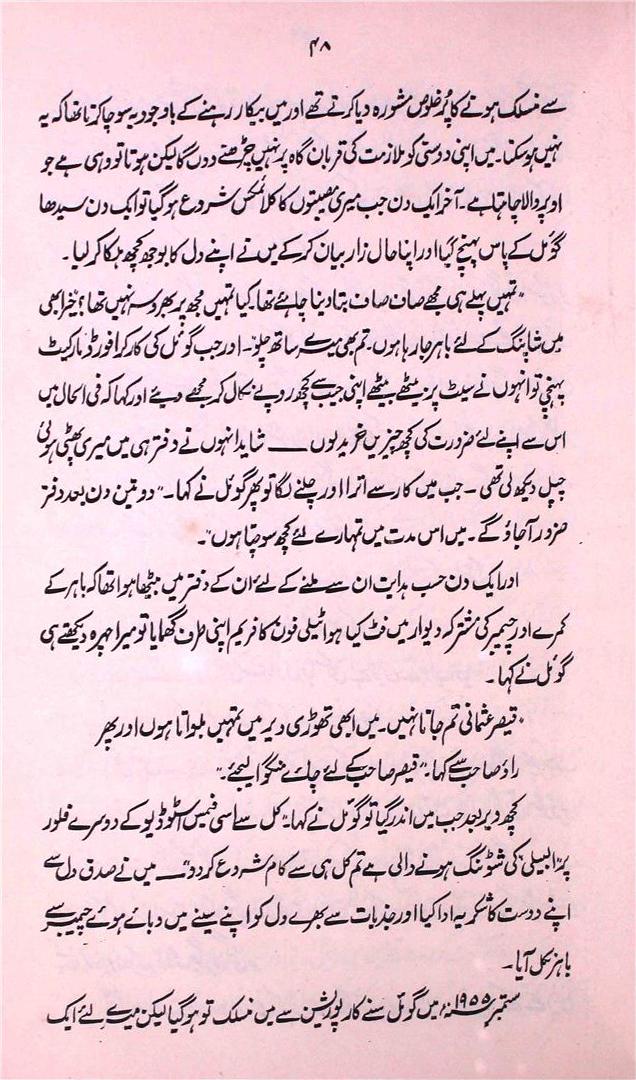 ۴۸
سے منسلک ہونے کا پُر خلوص مشورہ دیا کرتے تھے اور میں بیکار رہنے کے باوجود یہ سوچا کرتا تھا کہ یہ
نہیں ہو سکتا۔ میں اپنی دوستی کو ملازمت کی قربان گاہ پر نہیں چڑھنے دوں گا لیکن ہوتا تو وہی ہے جو
اوپر والا چاہتا ہے۔ آخر ایک دن جب میری مصیبتوں کا کلائمکس شروع ہو گیا تو ایک دن سیدھا
گوئل کے پاس پہنچ گیا اور اپنا حال زار بیان کر کے میں نے اپنے دل کا بوجھ کچھ ہلکا کر لیا۔
"تمہیں پہلے ہی مجھے صاف صاف بتا دینا چاہئے تھا۔ کیا تمہیں مجھ پر بھروسہ نہیں تھا؟ خیر ابھی
میں شاپنگ کے لئے باہر جا رہا ہوں۔ تم بھی میرے ساتھ چلو۔ اور جب گوئل کی کار کرافورڈ مارکیٹ
پہنچی تو انہوں نے سیٹ پر بیٹھے بیٹھے اپنی جیب سے کچھ روپے نکال کر مجھے دیئے اور کہا کہ فی الحال میں
اس سے اپنے لئے ضرورت کی کچھ چیزیں خرید لوں ــــــ شاید انہوں نے دفتر ہی میں میری پھٹی ہوئی
چپل دیکھ لی تھی۔ جب میں کار سے اترا اور چلنے لگا تو پھر گوئل نے کہا۔ "دو تین دن بعد دفتر
ضرور آجاؤ گے۔ میں اس مدت میں تمہارے لئے کچھ سوچتا ہوں"۔
اور ایک دن حسب ہدایت ان سے ملنے کے لئے ان کے دفتر میں بیٹھا ہوا تھا کہ باہر کے
کمرے اور چیمبر کی مشترکہ دیوار میں فٹ کیا ہوا ٹیلی فون کا فریم اپنی طرف گھمایا تو میرا چہرہ دیکھتے ہی
گوئل نے کہا۔
"قیصر عثمانی تم جانا نہیں۔ میں ابھی تھوڑی دیر میں تمہیں بلواتا ہوں اور پھر
راؤ صاحب سے کہا۔ "قیصر صاحب کے لئے چائے منگوا لیجئے۔"
کچھ دیر بعد جب میں اندر گیا تو گوئل نے کہا۔ "کل سے اسی فیمس اسٹوڈیو کے دوسرے فلور
پر البیلی کی شوٹنگ ہونے والی ہے تم کل ہی سے کام شروع کر دو" ــــ میں نے صدق دل سے
اپنے دوست کا شکریہ ادا کیا اور جذبات سے بھرے دل کو اپنے سینے میں دبائے ہوئے چیمبر سے
باہر نکل آیا۔
ستمبر ۱۹۵۵ء میں گوئل سنے کارپوریشن سے میں منسلک تو ہو گیا لیکن میرے لئے ایک